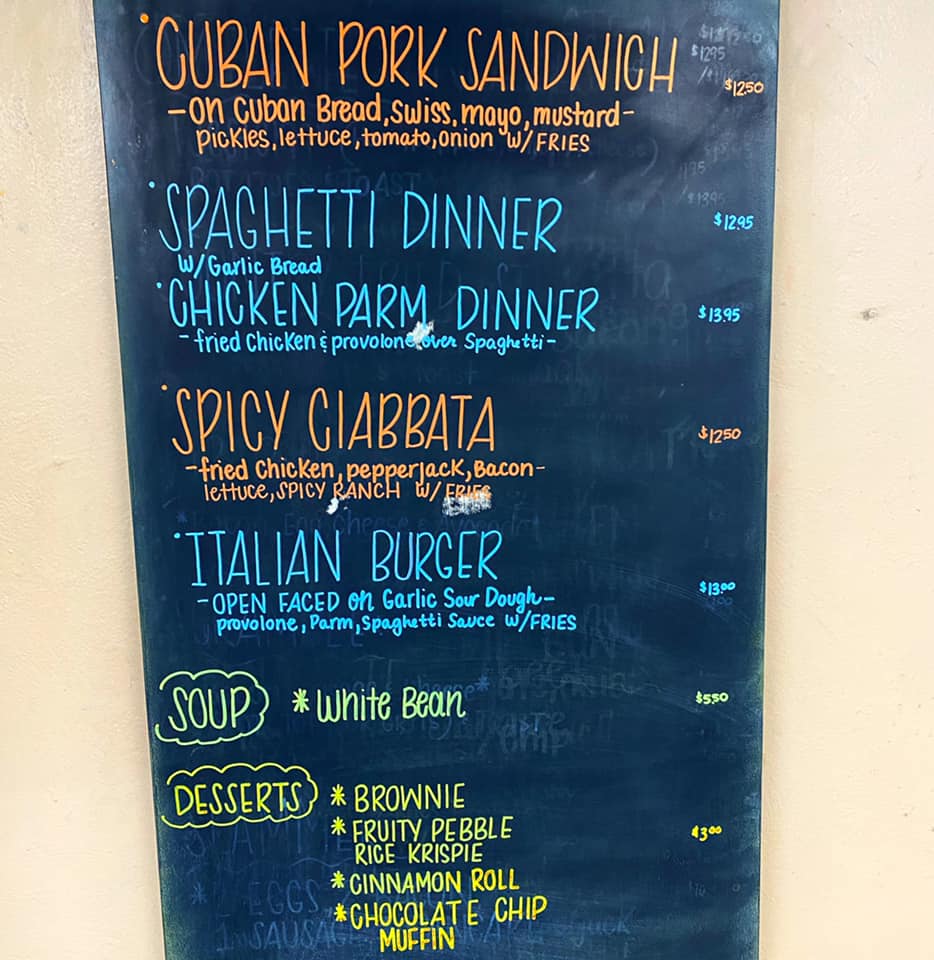 • CUBAN PORK SANDWICH $12.50
- on Cuban Bread, swiss, mayo, mustard -
pickles, lettuce, tomato, onion w/ FRIES
• SPAGHETTI DINNER $12.95
w/ Garlic Bread
• CHICKEN PARM DINNER $13.95
- fried Chicken & provolone over Spaghetti -
• SPICY CIABBATA $12.50
- fried Chicken, pepperjack, Bacon -
lettuce, SPICY RANCH w/ FRIES
• ITALIAN BURGER $13.00
- OPEN FACED on Garlic Sour Dough -
provolone, Parm, Spaghetti Sauce w/ FRIES
SOUP * White Bean $5.50
DESSERTS * BROWNIE
* FRUITY PEBBLE $3.00
RICE KRISPIE
* CINNAMON ROLL
* CHOCOLATE CHIP
MUFFIN